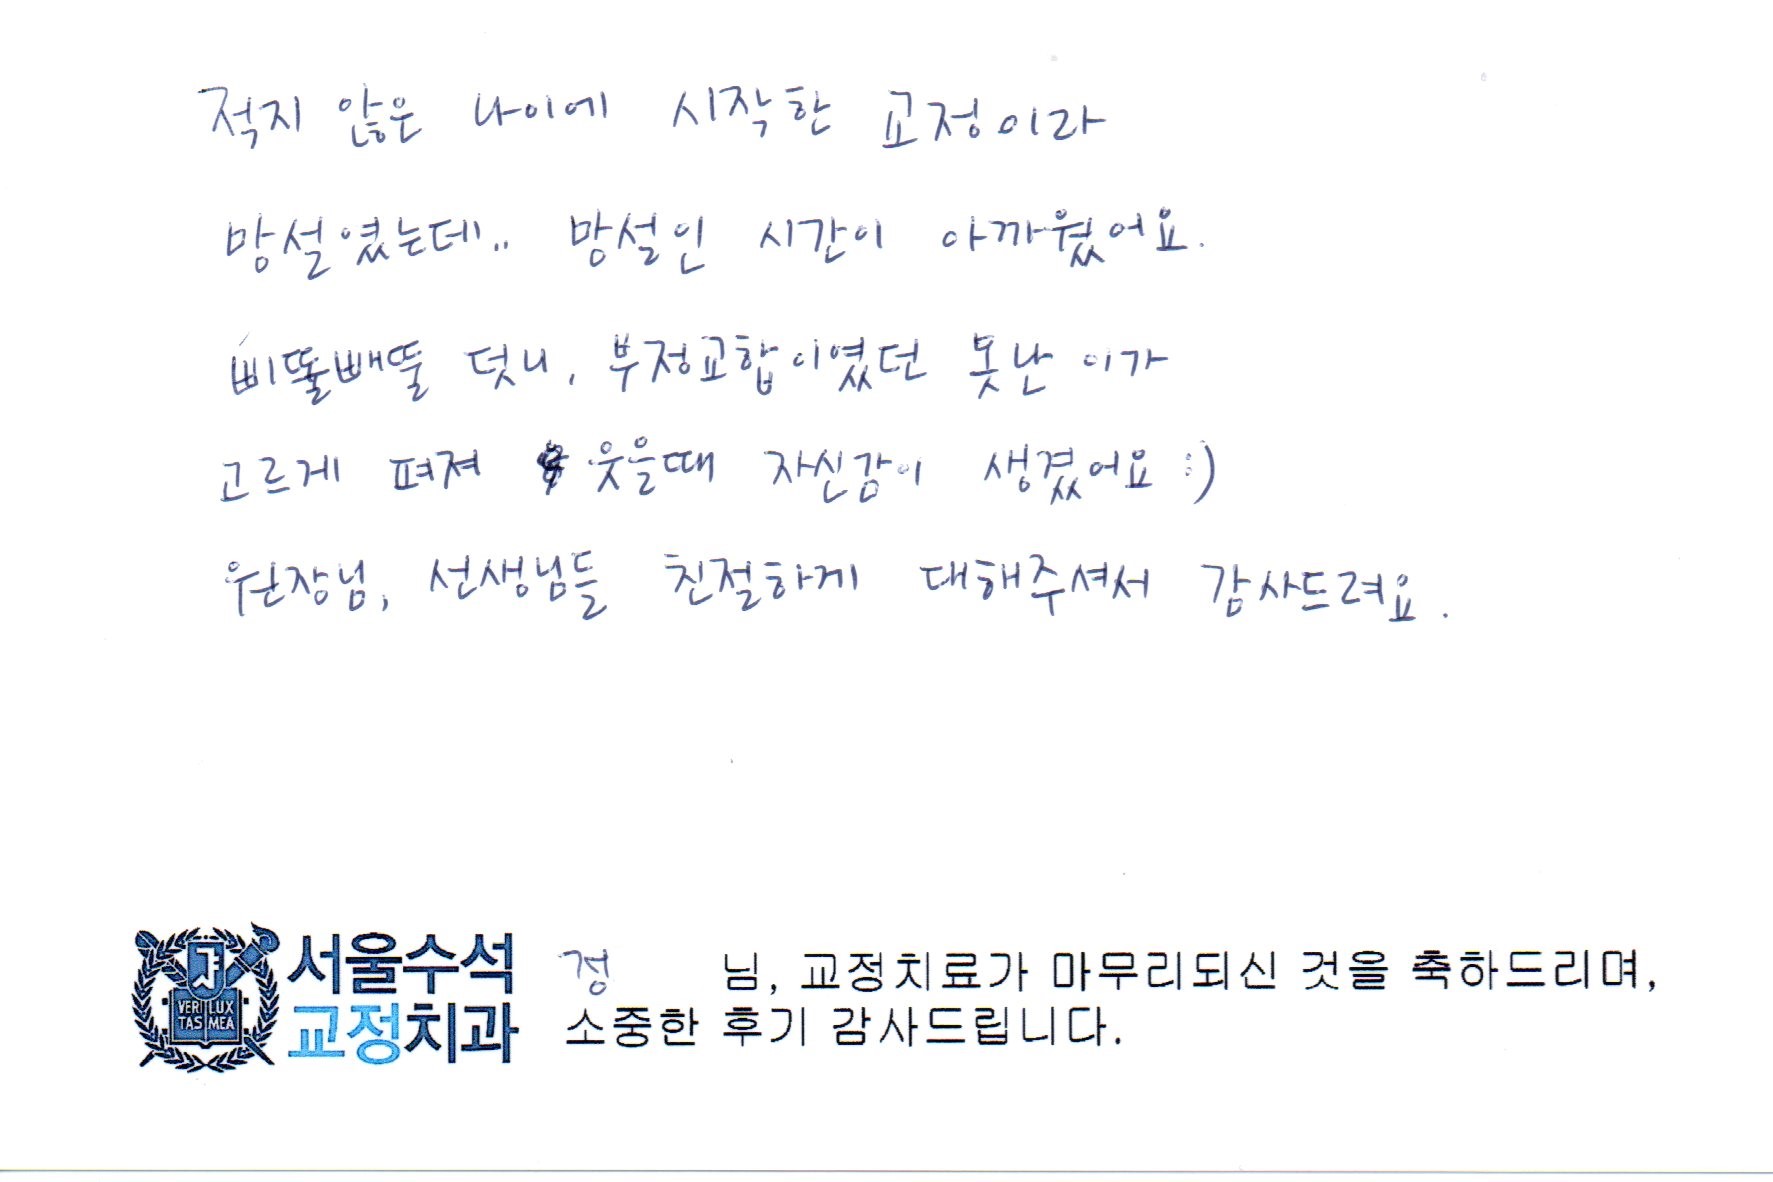 적지 않은 나이에 시작한 교정이라
망설였는데.. 망설인 시간이 아까웠어요.
삐뚤빼뚤 덧니, 부정교합이였던 못난 이가
고르게 펴져 웃을때 자신감이 생겼어요 :)
원장님, 선생님들 친절하게 대해주셔서 감사드려요.
서울수석
교정치과
VERI LUX
TAS MEA
정 님, 교정치료가 마무리되신 것을 축하드리며,
소중한 후기 감사드립니다.